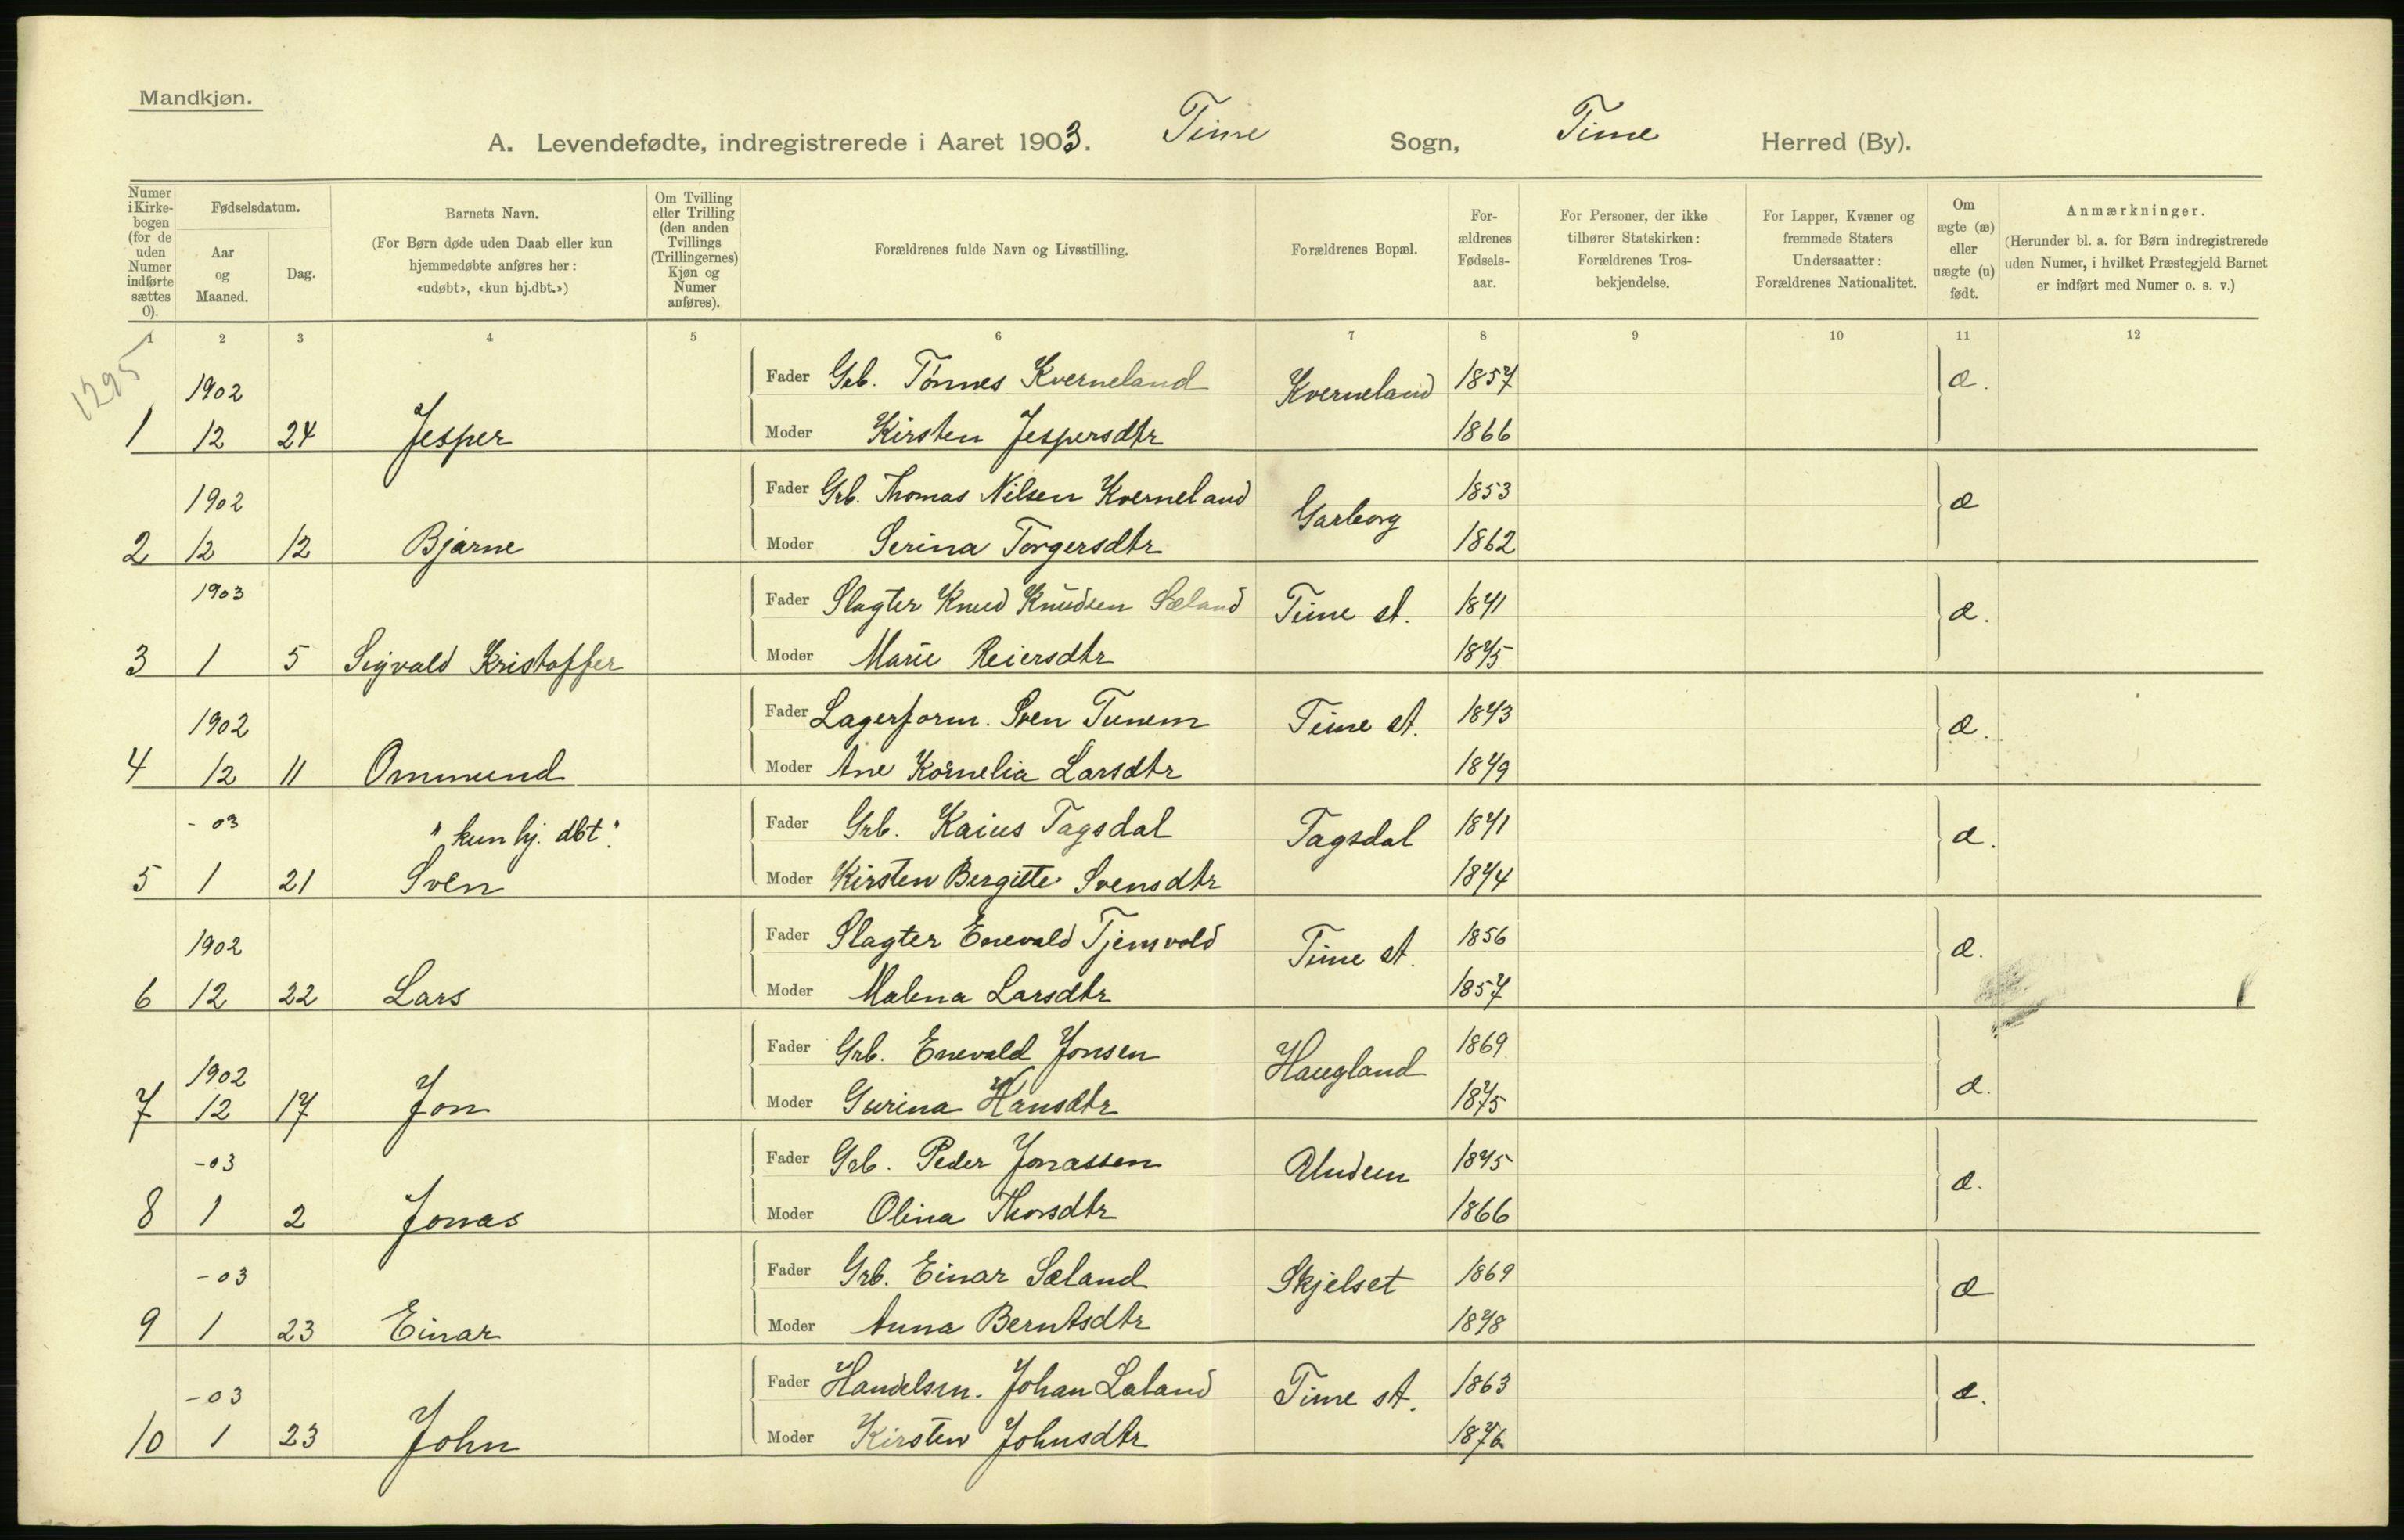 Mandkjøn.
A. Levendefødte, indregistrerede i Aaret 1903. Time Sogn, Time Herred (By).
Numer i Kirkebogen (for de uden Numer indførte sættes 0).
Fødselsdatum.
Aar og Maaned.
Dag.
Barnets Navn.
(For Børn døde uden Daab eller kun hjemmedøbte anføres her: «udøbt», «kun hj.dbt.»)
Om Tvilling eller Trilling (den anden Tvillings (Trillingernes) Kjøn og Numer anføres).
Forældrenes fulde Navn og Livsstilling.
Forældrenes Bopæl.
Forældrenes Fødselsaar.
For Personer, der ikke tilhører Statskirken: Forældrenes Trosbekjendelse.
For Lapper, Kvæner og fremmede Staters Undersaatter: Forældrenes Nationalitet.
Om ægte (æ) eller uægte (u) født.
Anmærkninger.
(Herunder bl. a. for Børn indregistrerede uden Numer, i hvilket Præstegjeld Barnet er indført med Numer o. s. v.)
1 2 3 4 5 6 7 8 9 10 11 12
1295
1902 Fader Grb. Tönnes Kverneland Kverneland 1857 æ.
1 12 24 Jesper Moder Kirsten Jespersdtr 1866
1902 Fader Grb. Thomas Nilsen Kverneland Garborg 1853 æ
2 12 12 Bjarne Moder Serina Torgersdtr 1862
1903 Fader Slagter Knud Knudsen Sæland Time st. 1871 æ.
3 1 5 Sigvald Kristoffer Moder Marie Reiersdtr 1875
1902 Fader Lagerform. Sven Tunem Time st. 1873 æ.
4 12 11 Ommund Moder Ane Kornelia Larsdtr 1879
- 03 "kun hj. dbt". Fader Grb. Kaius Tagsdal Tagsdal 1871 æ.
5 1 21 Sven Moder Kirsten Bergitte Svensdtr 1874
1902 Fader Slagter Enevald Tjensvold Time st. 1856 æ.
6 12 22 Lars Moder Malena Larsdtr 1857
1902 Fader Grb. Enevald Jonsen Haugland 1869 æ.
7 12 17 Jon Moder Gurina Hansdtr 1875
-03 Fader Grb. Peder Jonassen Undem 1875 æ.
8 1 2 Jonas Moder Olina Thorsdtr 1866
-03 Fader Grb. Einar Sæland Skjelset 1869 æ
9 1 23 Einar Moder Anna Berntsdtr 1878
-03 Fader Handelsm. Johan Laland Time st. 1863 æ.
10 1 23 John Moder Kirsten Johnsdtr 1876